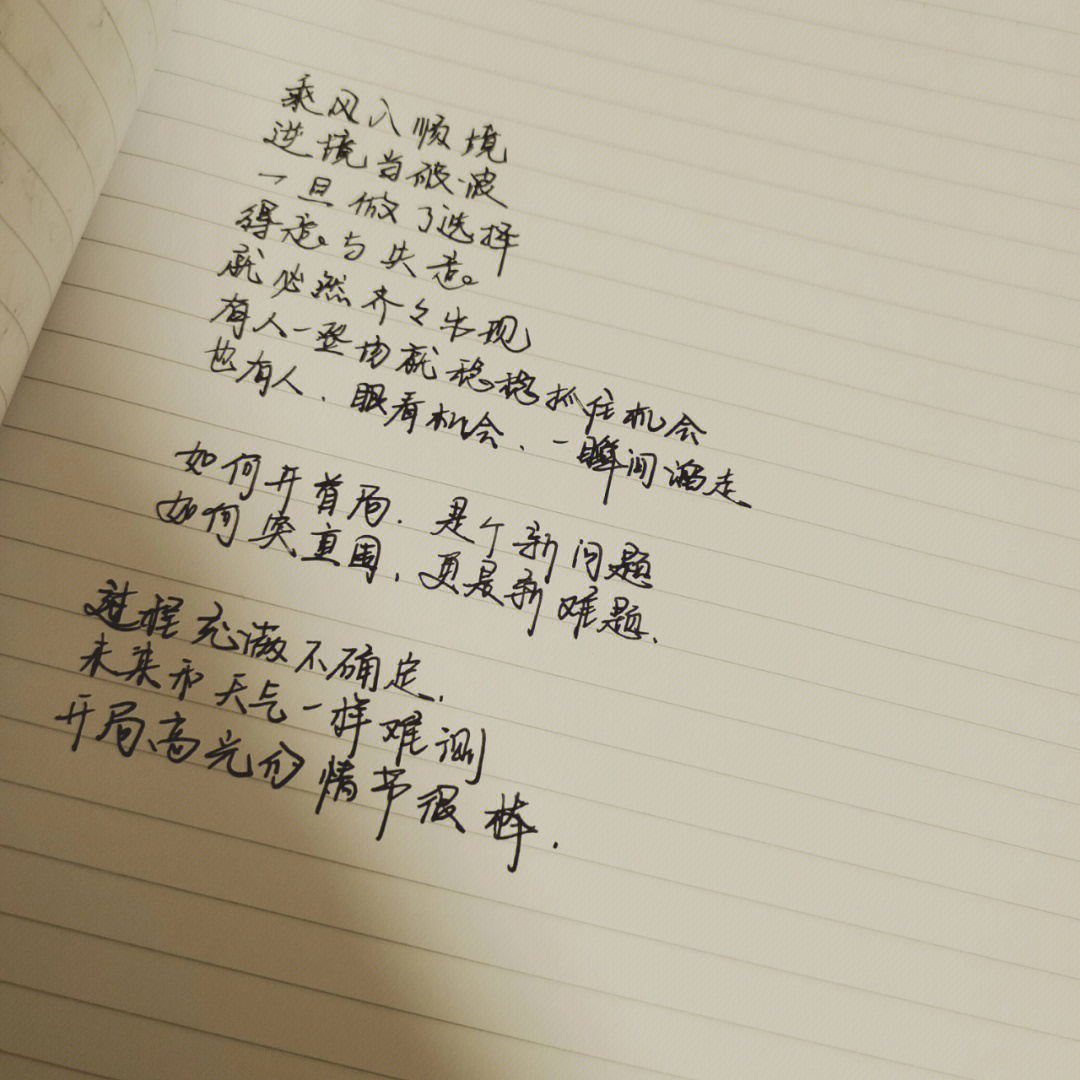 乘风入顺境
逆境当破波
一旦做了选择
得意与失意。
就必然齐々出现
有人一登场就稳稳抓住机会
也有人、眼看机会、一瞬间溜走
如何开首局.是个新问题
如何突重围,更是新难题.
过程充满不确定.
未来和天气一样难测
开局高光的情节很棒.